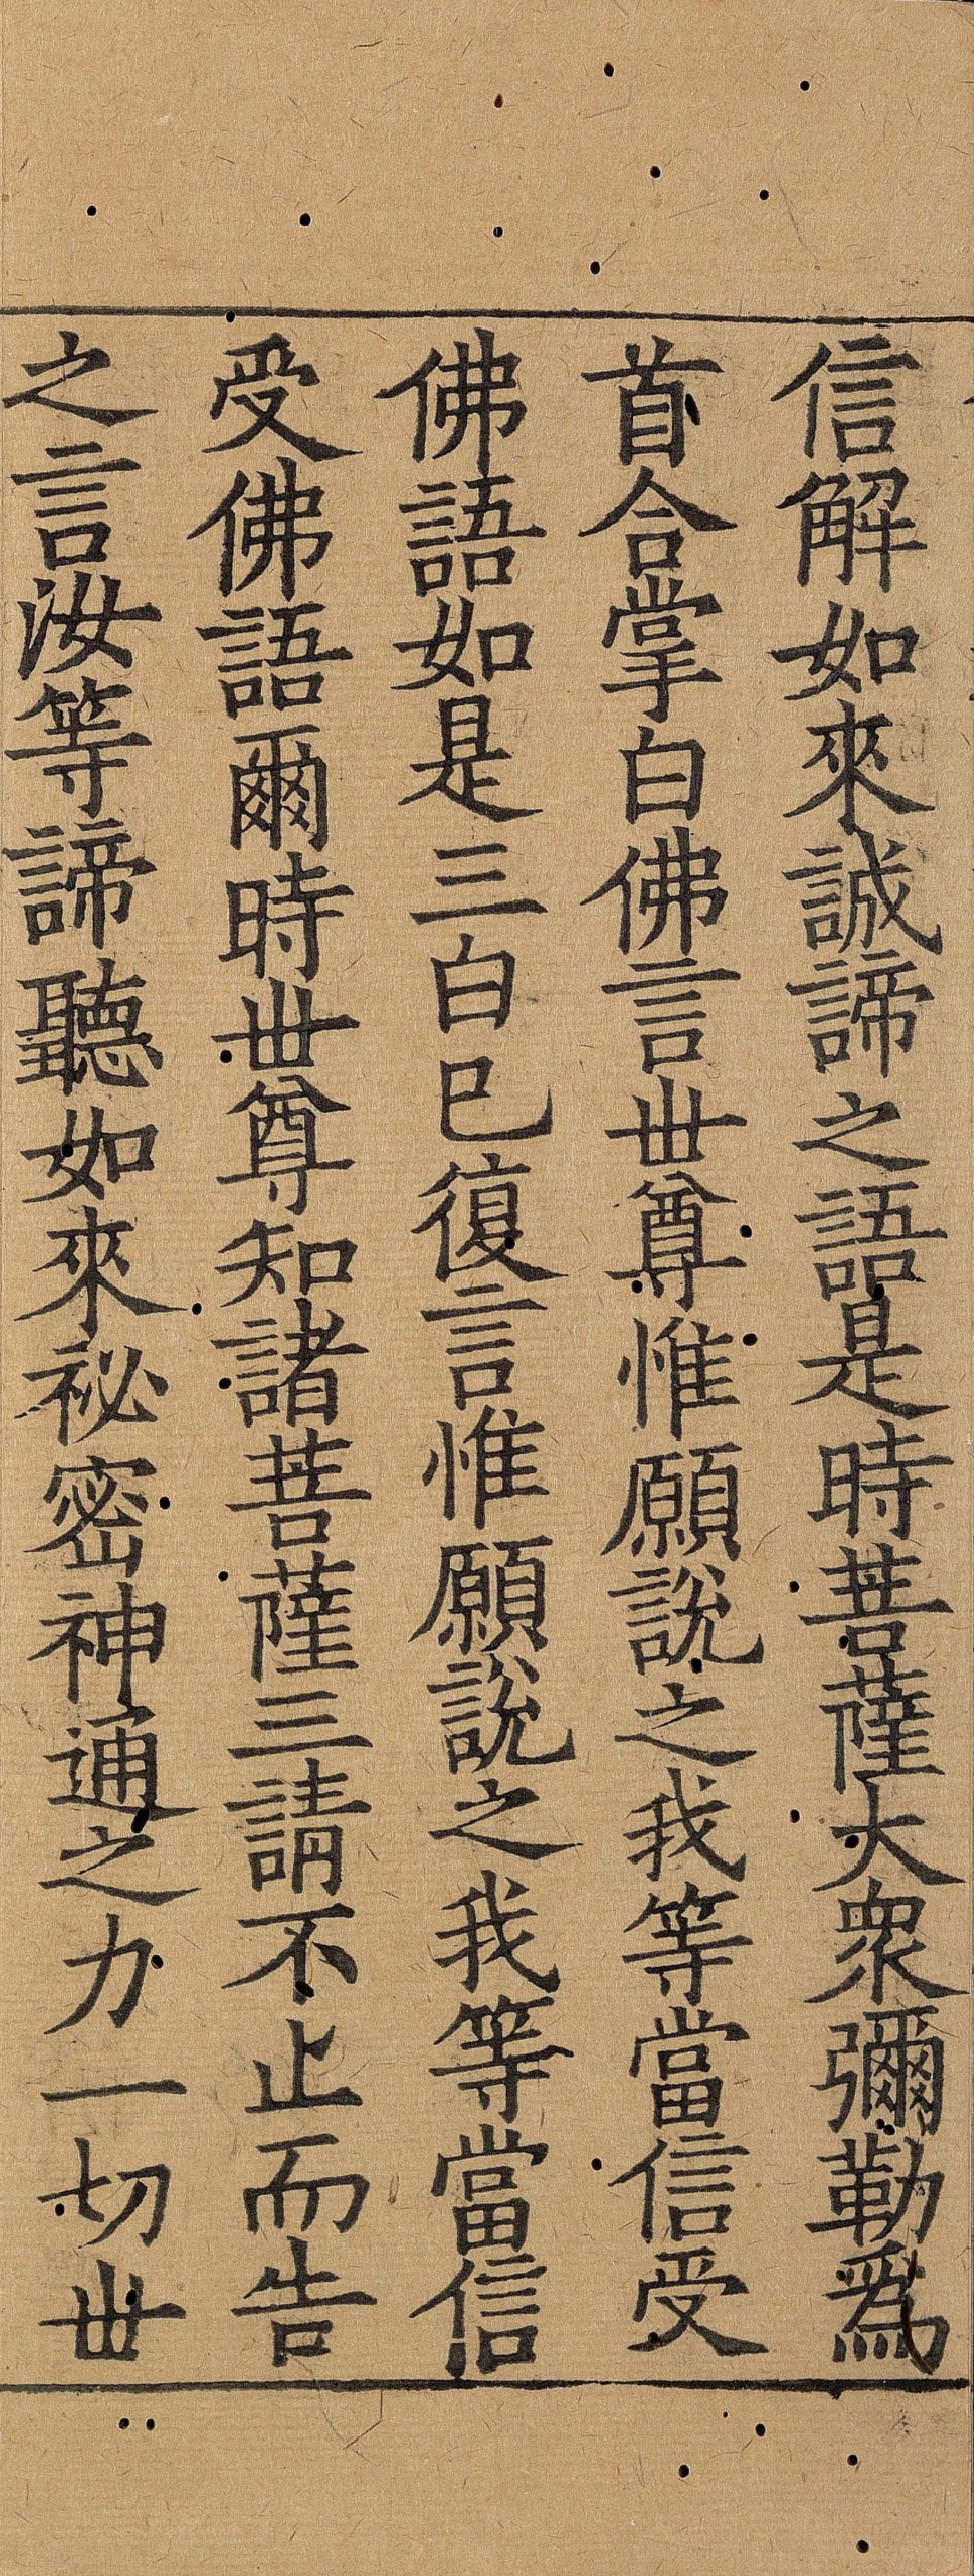 信解如來誠諦之語是時菩薩大衆彌勒爲
首合掌白佛言丗尊惟願說之我等當信受
佛語如是三白已復言惟願說之我等當信
受佛語爾時丗尊知諸菩薩三請不止而告
之言汝等諦聽如來祕密神通之力一切丗